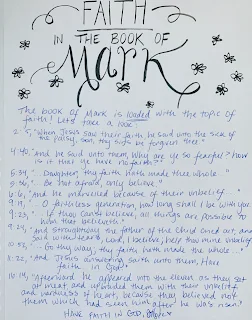 FAITH
IN THE BOOK OF
Mark
The book of Mark is loaded with the topic of
faith! Let's take a look:
2:5, "When Jesus saw their faith he said unto the sick of
the palsy, Son, thy sins be forgiven thee."
4:40, "And he said unto them, Why are ye so fearful? how
is it that ye have no faith?"
5:34, "... Daughter, thy faith hath made thee whole..."
5:36, "... Be not afraid, only believe."
6:6, "And he marvelled because of their unbelief..."
9:19, "... O faithless generation, how long shall I be with you..
9:23, "... If thou canst believe, all things are possible to
him that believeth."
9:24, "And straightway the father of the child cried out, and
said with tears, Lord, I believe; help thou mine unbelief
10:52, "... Go thy way; thy faith hath made thee whole..."
11:22, "And Jesus answering saith unto them, Have
faith in God."
16:14, "Afterward he appeared unto the eleven as they sat
at meat and upbraided them with their unbelief
and hardness of heart, because they believed not
them which had seen him after he was risen."
HAVE FAITH IN GOD,